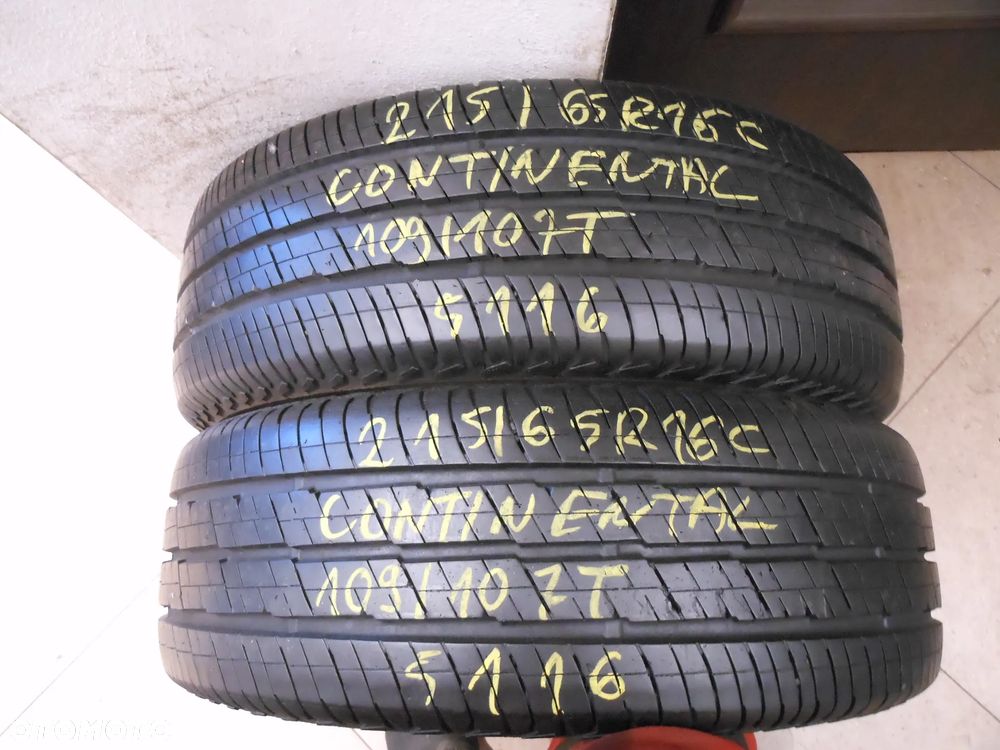 215/65R16C
CONTINENTAL
109/107T
5116
215/65R16C
CONTINENTAL
109/107T
5116
OTOMOTO